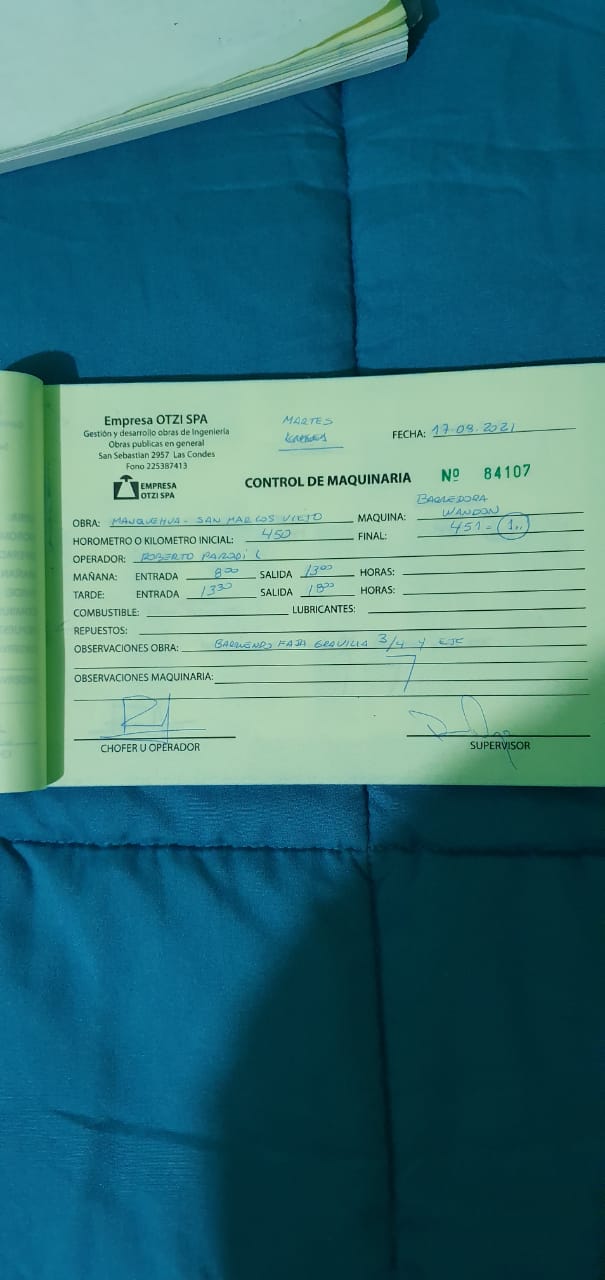 Empresa OTZI SPA
Gestión y desarrollo obras de Ingeniería
Obras publicas en general
San Sebastian 2957 Las Condes
Fono 225387413
EMPRESA
OTZI SPA
MARTES
FECHA: 17-08-2021
CONTROL DE MAQUINARIA Nº 84107
OBRA: MANQUEHUA - SAN MARCOS VIEJO MAQUINA: BARREDORA
WANDON
HOROMETRO O KILOMETRO INICIAL: 450 FINAL: 451 = 1..
OPERADOR: ROBERTO PARODI L
MAÑANA: ENTRADA 800 SALIDA 1300 HORAS:
TARDE: ENTRADA 1330 SALIDA 1800 HORAS:
COMBUSTIBLE: LUBRICANTES:
REPUESTOS:
OBSERVACIONES OBRA: BARRIENDO FAJA GRAVILLA 3/4 Y EJE
OBSERVACIONES MAQUINARIA:
CHOFER U OPERADOR SUPERVISOR